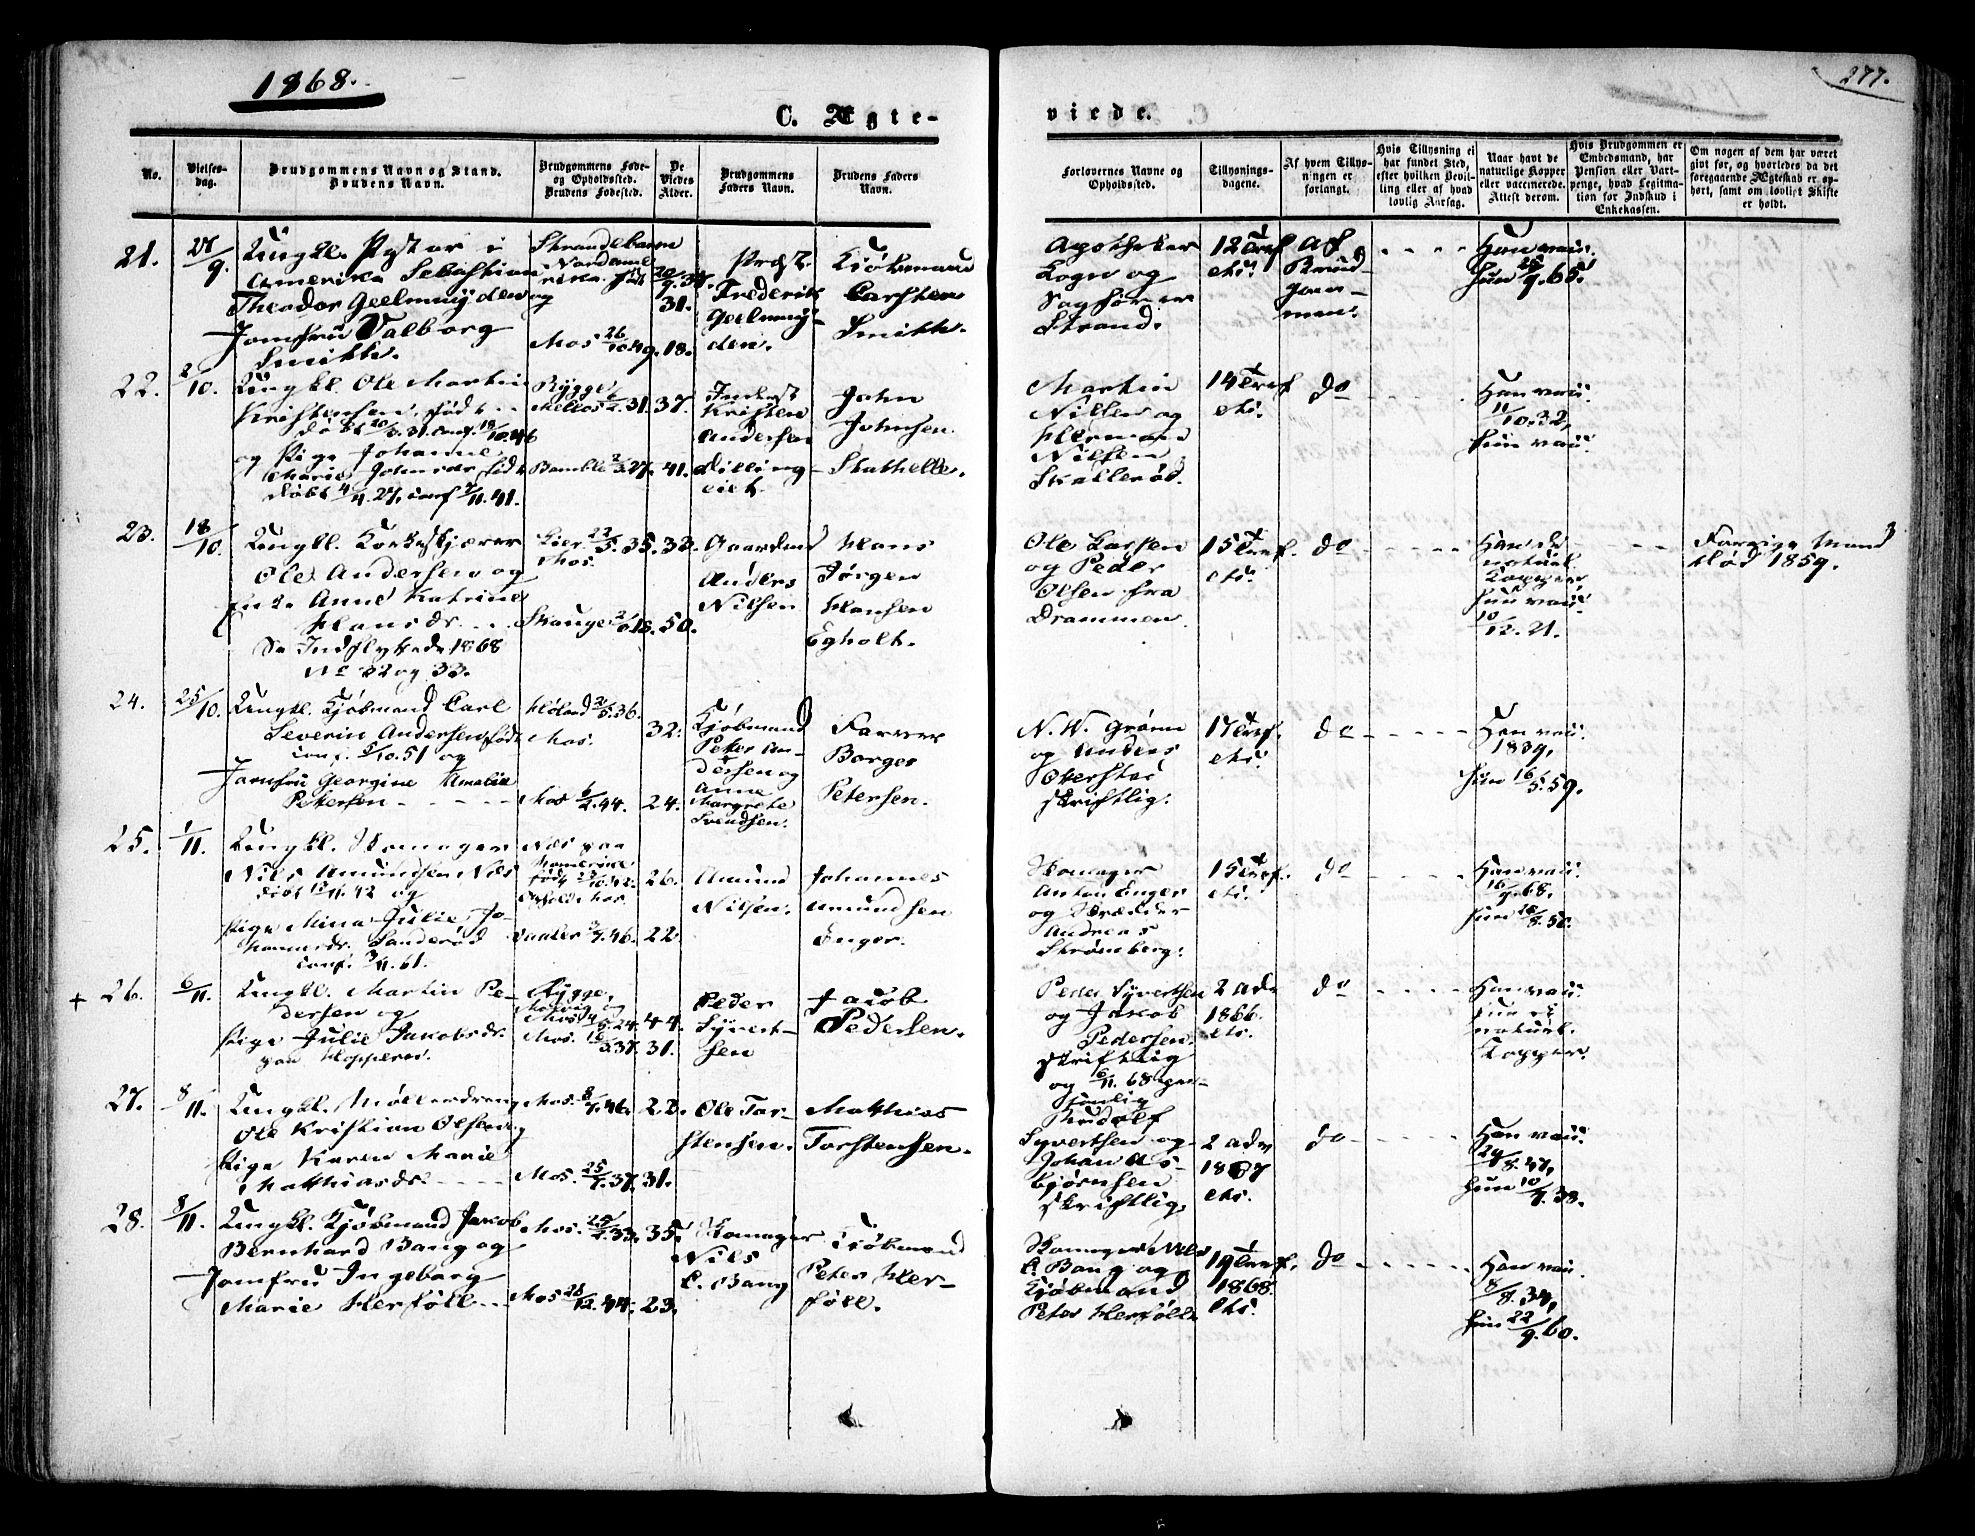 1868.
277.
C. Ægte-
viede.
No.
Vielses-
dag.
Brudgommens Navn og Stand.
Brudens Navn.
Brudgommens Føde-
og Opholdssted.
Brudens Fødested.
De
Viedes
Alder.
Brudgommens
Faders Navn.
Brudens Faders
Navn.
Forlovernes Navne og
Opholdssted.
Tillysnings-
dagene.
Af hvem Tillys-
ningen er
forlangt.
Hvis Tillysning ei
har fundet Sted,
efter hvilken Bevil-
ling eller af hvad
lovlig Aarsag.
Naar havt de
naturlige Kopper
eller vaccinerede.
Attest derom.
Hvis Brudgommen er
Embedsmand, har
Pension eller Vart-
penge, hvad Legitima-
tion for Indskud i
Enkekassen.
Om nogen af dem har været
gift før, og hvorledes da det
foregaaende Ægteskab er op-
hørt, samt om lovligt Skifte
er holdt.
21.
27/9.
Ungkl. Pastor i
Amerika Sebastian
Theodor Geelmuyden og
Jomfru Valborg
Smith.
Strandebarm
Nordame
rika. født
Mos 26/10.49.
31.
18.
Præst
Frederik
Geelmuy-
den.
Kjøbmand
Carsten
Smith.
Apotheker
Logn og
Sagfører
Strand.
12 Tref
etc.
af
Brud-
gom-
men.
Han vac.
Hun 25/9.65.
22.
2/10.
Ungkl. Ole Martin
Kristensen, født
og Pige Johanne
Marie Johnsdr. født
døbt 4/4.27, conf 7/11.41.
Rygge
31.
37.
Bamble
27.
41.
Inderst
Kristen
Andersen
Dilling-
eiet.
John
Johnsen
Stathelle.
Martin
Nilsen og
Herman
Nilsen
Skallerød.
14 Tref
etc.
do
Han vac.
11/10.32,
hun vac.
23.
18/10.
Ungkl. Korkeskjærer
Ole Andersen og
Enke Anne Katrine
Hansdr.
Se Indflyttede 1868
No 32 og 33.
Lier 23/5.35.
Mos.
33.
Skauger
18.
50.
Gaardmd
Anders
Nilsen
Hans
Jørgen
Hansen
Egholt.
Ole Larsen
og Peder
Olsen fra
Drammen.
15 Tref.
etc.
do
Han de
naturl.
Kopper
hun vac.
10/12.21.
Forrige Mand
død 1859.
24.
25/10.
Ungkl. Kjøbmand Carl
Severin Andersen, født
conf. 5/10.51 og
Jomfru Georgine Amalie
Petersen
Høland
36.
Mos.
32.
Mos 6/2.44.
24.
Kjøbmand
Peter An-
dersen og
Anne
Margrete
Svendsen.
Farver
Borger
Petersen.
N. W. Grønn
og Anders
skriftlig.
17 Tref.
etc.
do
Han vac.
1839,
hun 16/5.59.
25.
1/11.
Ungkl. Skomager
Nils Amundsen Næs
døbt 13/11.42 og
Pige Mina Julie Jo-
hannesdr. Sanderød
conf. 3/11.61.
Næs paa
Romerike
født 23/10.42.
Ophold Mos.
26.
Vaaler
46.
22.
Amund
Nilsen.
Johannes
Amundsen
Enger.
Skomager
Anton Enger
og Skrædder
Andreas
Strømberg.
15 Tref.
etc.
do
Han vac.
16/9.68.
hun
50.
+ 26.
6/11.
Ungkl. Martin Pe-
dersen og
Pige Julie Jakobsdr.
paa Kopperns.
Rygge,
24.
44.
Mos.
37.
31.
Peder
Syvert-
sen
Jacob
Pedersen.
Peder Syvertsen
og Jakob
Pedersen,
skriftlig
og 6/11.68 per-
sonlig
2 adv
1866.
etc.
do
Han vac.
hun de
naturl.
Kopper.
27.
8/11.
Ungkl. Møllerdreng
Ole Kristian Olsen og
Pige Karen Marie
Matthiasdr.
Mos. 8/7.46.
22.
Mos. 25/7.37.
31.
Ole Tor-
stensen.
Matthias
Torstensen.
Rudolf
Syvertsen og
Johan As-
bjørnsen
skriftlig
2 adv
1867
etc.
do
Han vac.
29/8.47,
hun 10/7.38.
28.
8/11.
Ungkl. Kjøbmand Jakob
Bernhard Bang og
Jomfru Ingeborg
Marie Herføll
Mos.
33.
35.
Mos
44.
23.
Skomager
Nils
C. Bang
Kjøbmand
Peter Her-
føll.
Skomager Nils
C. Bang og
Kjøbmand
Peter Herføll
19 Tref.
1868.
etc.
do
Han vac.
8/8.34,
hun 22/9.60.